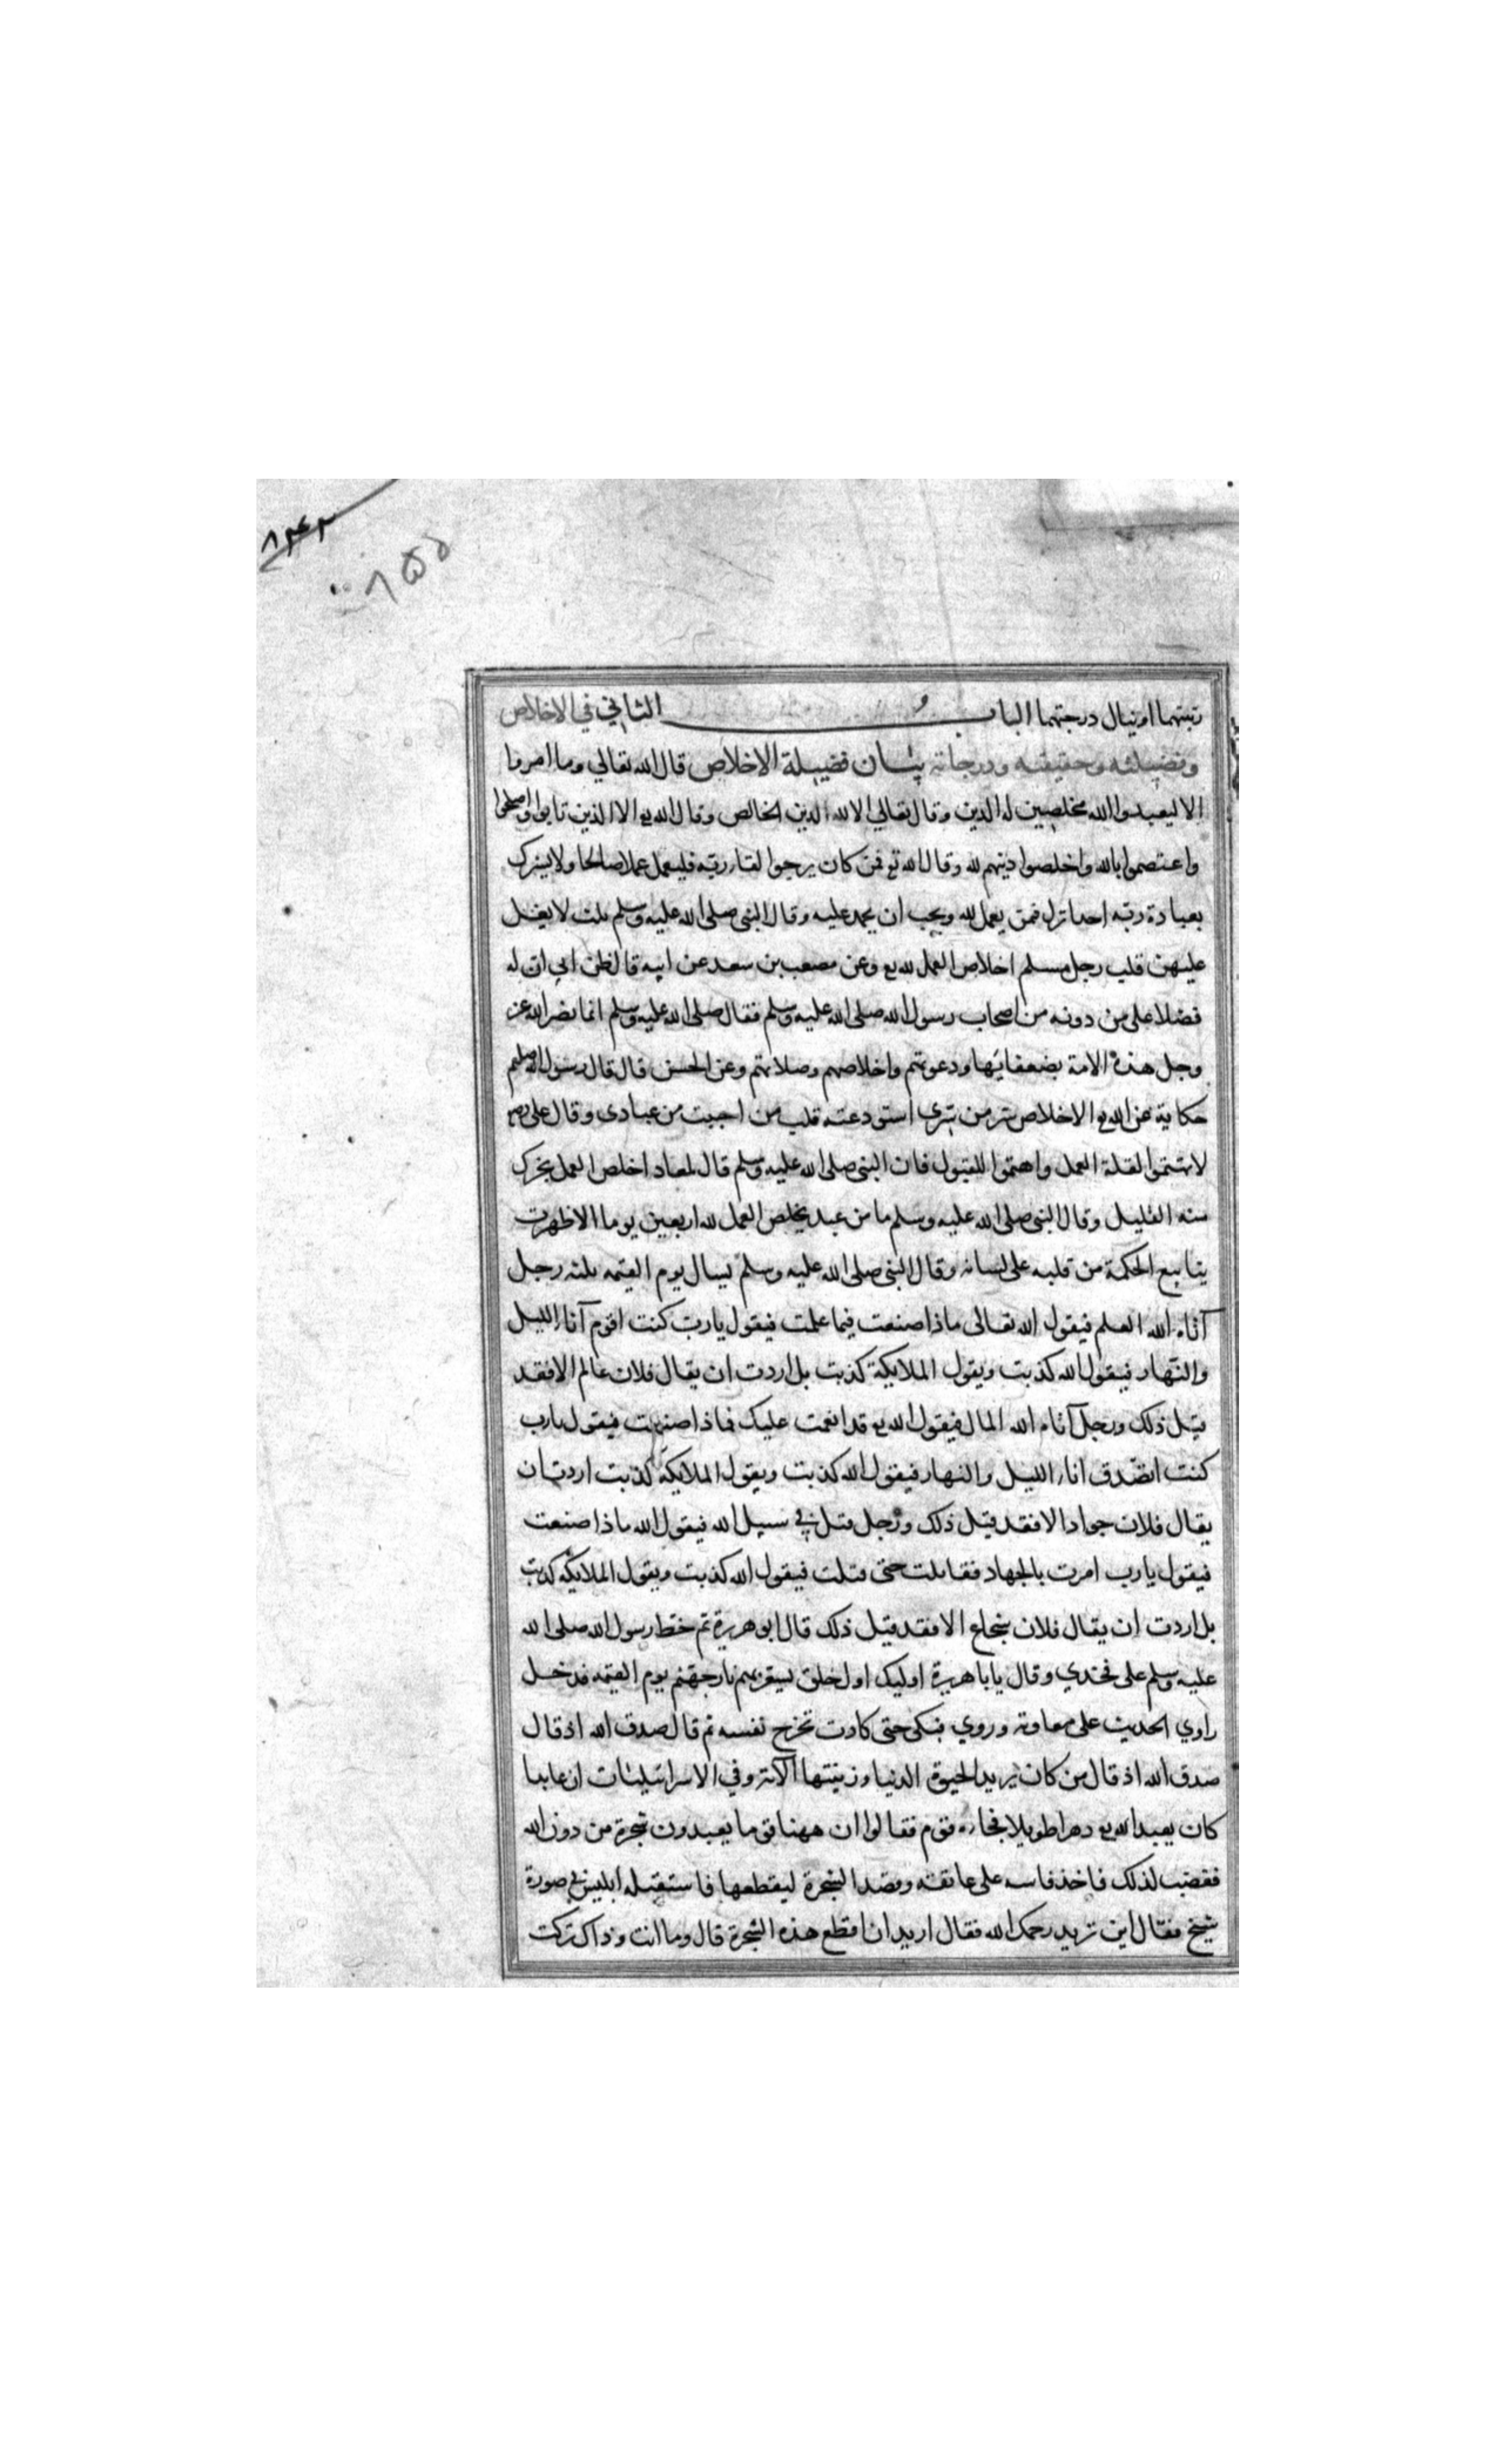 ٨٣٤٣
٨٥٥
رتبتهما او ينال درجتهما الباب الثاني في الاخلاص
وفضيلته وحقيقته ودرجاته بيان فضيلة الاخلاص قال الله تعالي وما امروا
الا ليعبدوا الله مخلصين له الدين وقال تعالي الا لله الدين الخالص وقال الله تع الا الذين تابوا واصلحوا
واعتصموا بالله واخلصوا دينهم لله وقال الله تع فمن كان يرجوا لقاء ربه فليعمل عملا صالحا ولا يشرك
بعبادة ربه احدا نزل فمن يعمل لله ويحب ان يحمد عليه وقال النبي صلى الله عليه وسلم ثلث لا يغل
عليهن قلب رجل مسلم اخلاص العمل لله تع وعن مصعب بن سعد عن ابيه قال ظن ابي ان له
فضلا على من دونه من اصحاب رسول الله صلى الله عليه وسلم فقال صلى الله عليه وسلم انما نصر الله عز
وجل هذه الامة بضعفائها ودعوتهم واخلاصهم وصلاتهم وعن الحسن قال قال رسول الله صلعم
حكاية عن الله تع الاخلاص سر من سري استودعته قلب من احببت من عبادى وقال علي رضه
لا تهتموا لقلة العمل واهتموا للقبول فان النبي صلى الله عليه وسلم قال لمعاد اخلص العمل يجزك
منه القليل وقال النبي صلى الله عليه وسلم ما من عبد يخلص العمل لله اربعين يوما الا ظهرت
ينابيع الحكمة من قلبه على لسانه وقال النبي صلى الله عليه وسلم يسال يوم القيمه ثلثه رجل
آتاه الله العلم فيقول الله تعالى ماذا صنعت فيما علمت فيقول يا رب كنت اقوم آناء الليل
والنهار فيقول الله كذبت ويقول الملايكة كذبت بل اردت ان يقال فلان عالم الا فقد
قيل ذلك ورجل آتاه الله المال فيقول الله تع قد انعمت عليك فماذا صنعت فيقول يارب
كنت اتصدق اناء الليل والنهار فيقول الله كذبت ويقول الملايكة كذبت اردت ان
يقال فلان جواد الا فقد قيل ذلك ورجل قتل في سبيل الله فيقول الله ماذا صنعت
فيقول يا رب امرت بالجهاد فقاتلت حتى قتلت فيقول الله كذبت ويقول الملايكة كذبت
بل اردت ان يقال فلان شجاع الا فقد قيل ذلك قال ابو هريرة ثم خط رسول الله صلى الله
عليه وسلم على فخذي وقال يا با هريرة اوليك اول خلق تسعر بهم نار جهنم يوم القيمه فدخل
راوي الحديث على معاوية وروي فبكى حتى كادت تخرج نفسه ثم قال صدق الله اذ قال
صدق الله اذ قال من كان يريد الحيوة الدنيا وزينتها الاية وفي الاسرائيليات ان عابدا
كان يعبد الله تع دهرا طويلا فجاءه قوم فقالوا ان ههنا قوما يعبدون شجرة من دون الله
فغضب لذلك فاخذ فاسه على عاتقه وقصد الشجرة ليقطعها فاستقبله ابليس في صورة
شيخ فقال اين تريد رحمك الله فقال اريد ان اقطع هذه الشجرة قال وما انت وذاك تركت